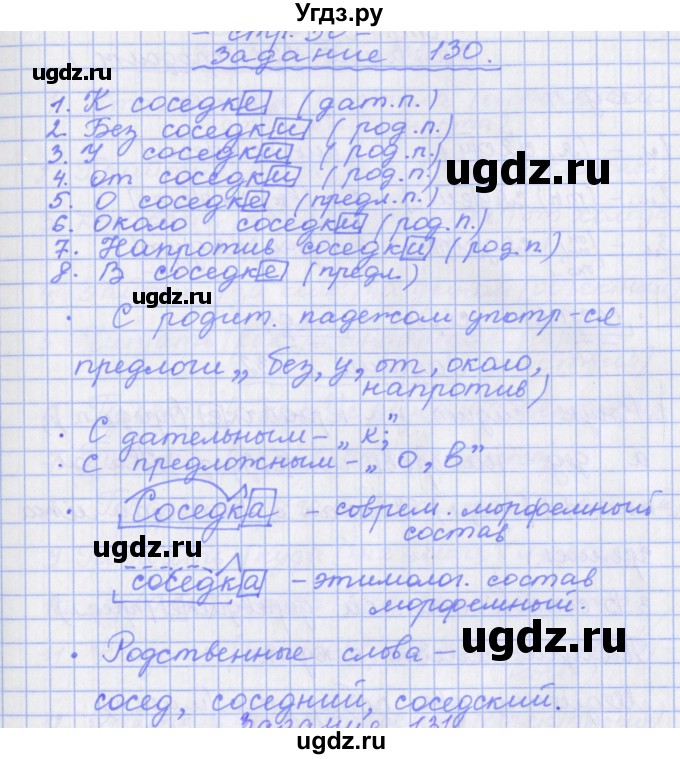 Угдз.ру
- стр. 50 -
Задание 130.
ugdz.ru
1. К соседке (дат.п.)
2. Без соседки (род.п.)
3. У соседки (род.п.)
4. от соседки (род.п.)
ugdz.ru
5. О соседке (предл.п.)
6. Около соседки (род.п.)
7. Напротив соседки (род.п.)
8. В соседке (предл.)
ugdz.ru
· С родит. падежом употр-ся
предлоги „ без, у, от, около,
напротив)
· С дательным - „ к;"
· С предложным - „ О, в"
Соседка - соврем. морфемный
состав
ugdz.ru
соседка - этимолог. состав
морфемный.
ugdz.ru
· Родственные слова -
сосед, соседний, соседский.
Задание 131
ugdz.ru